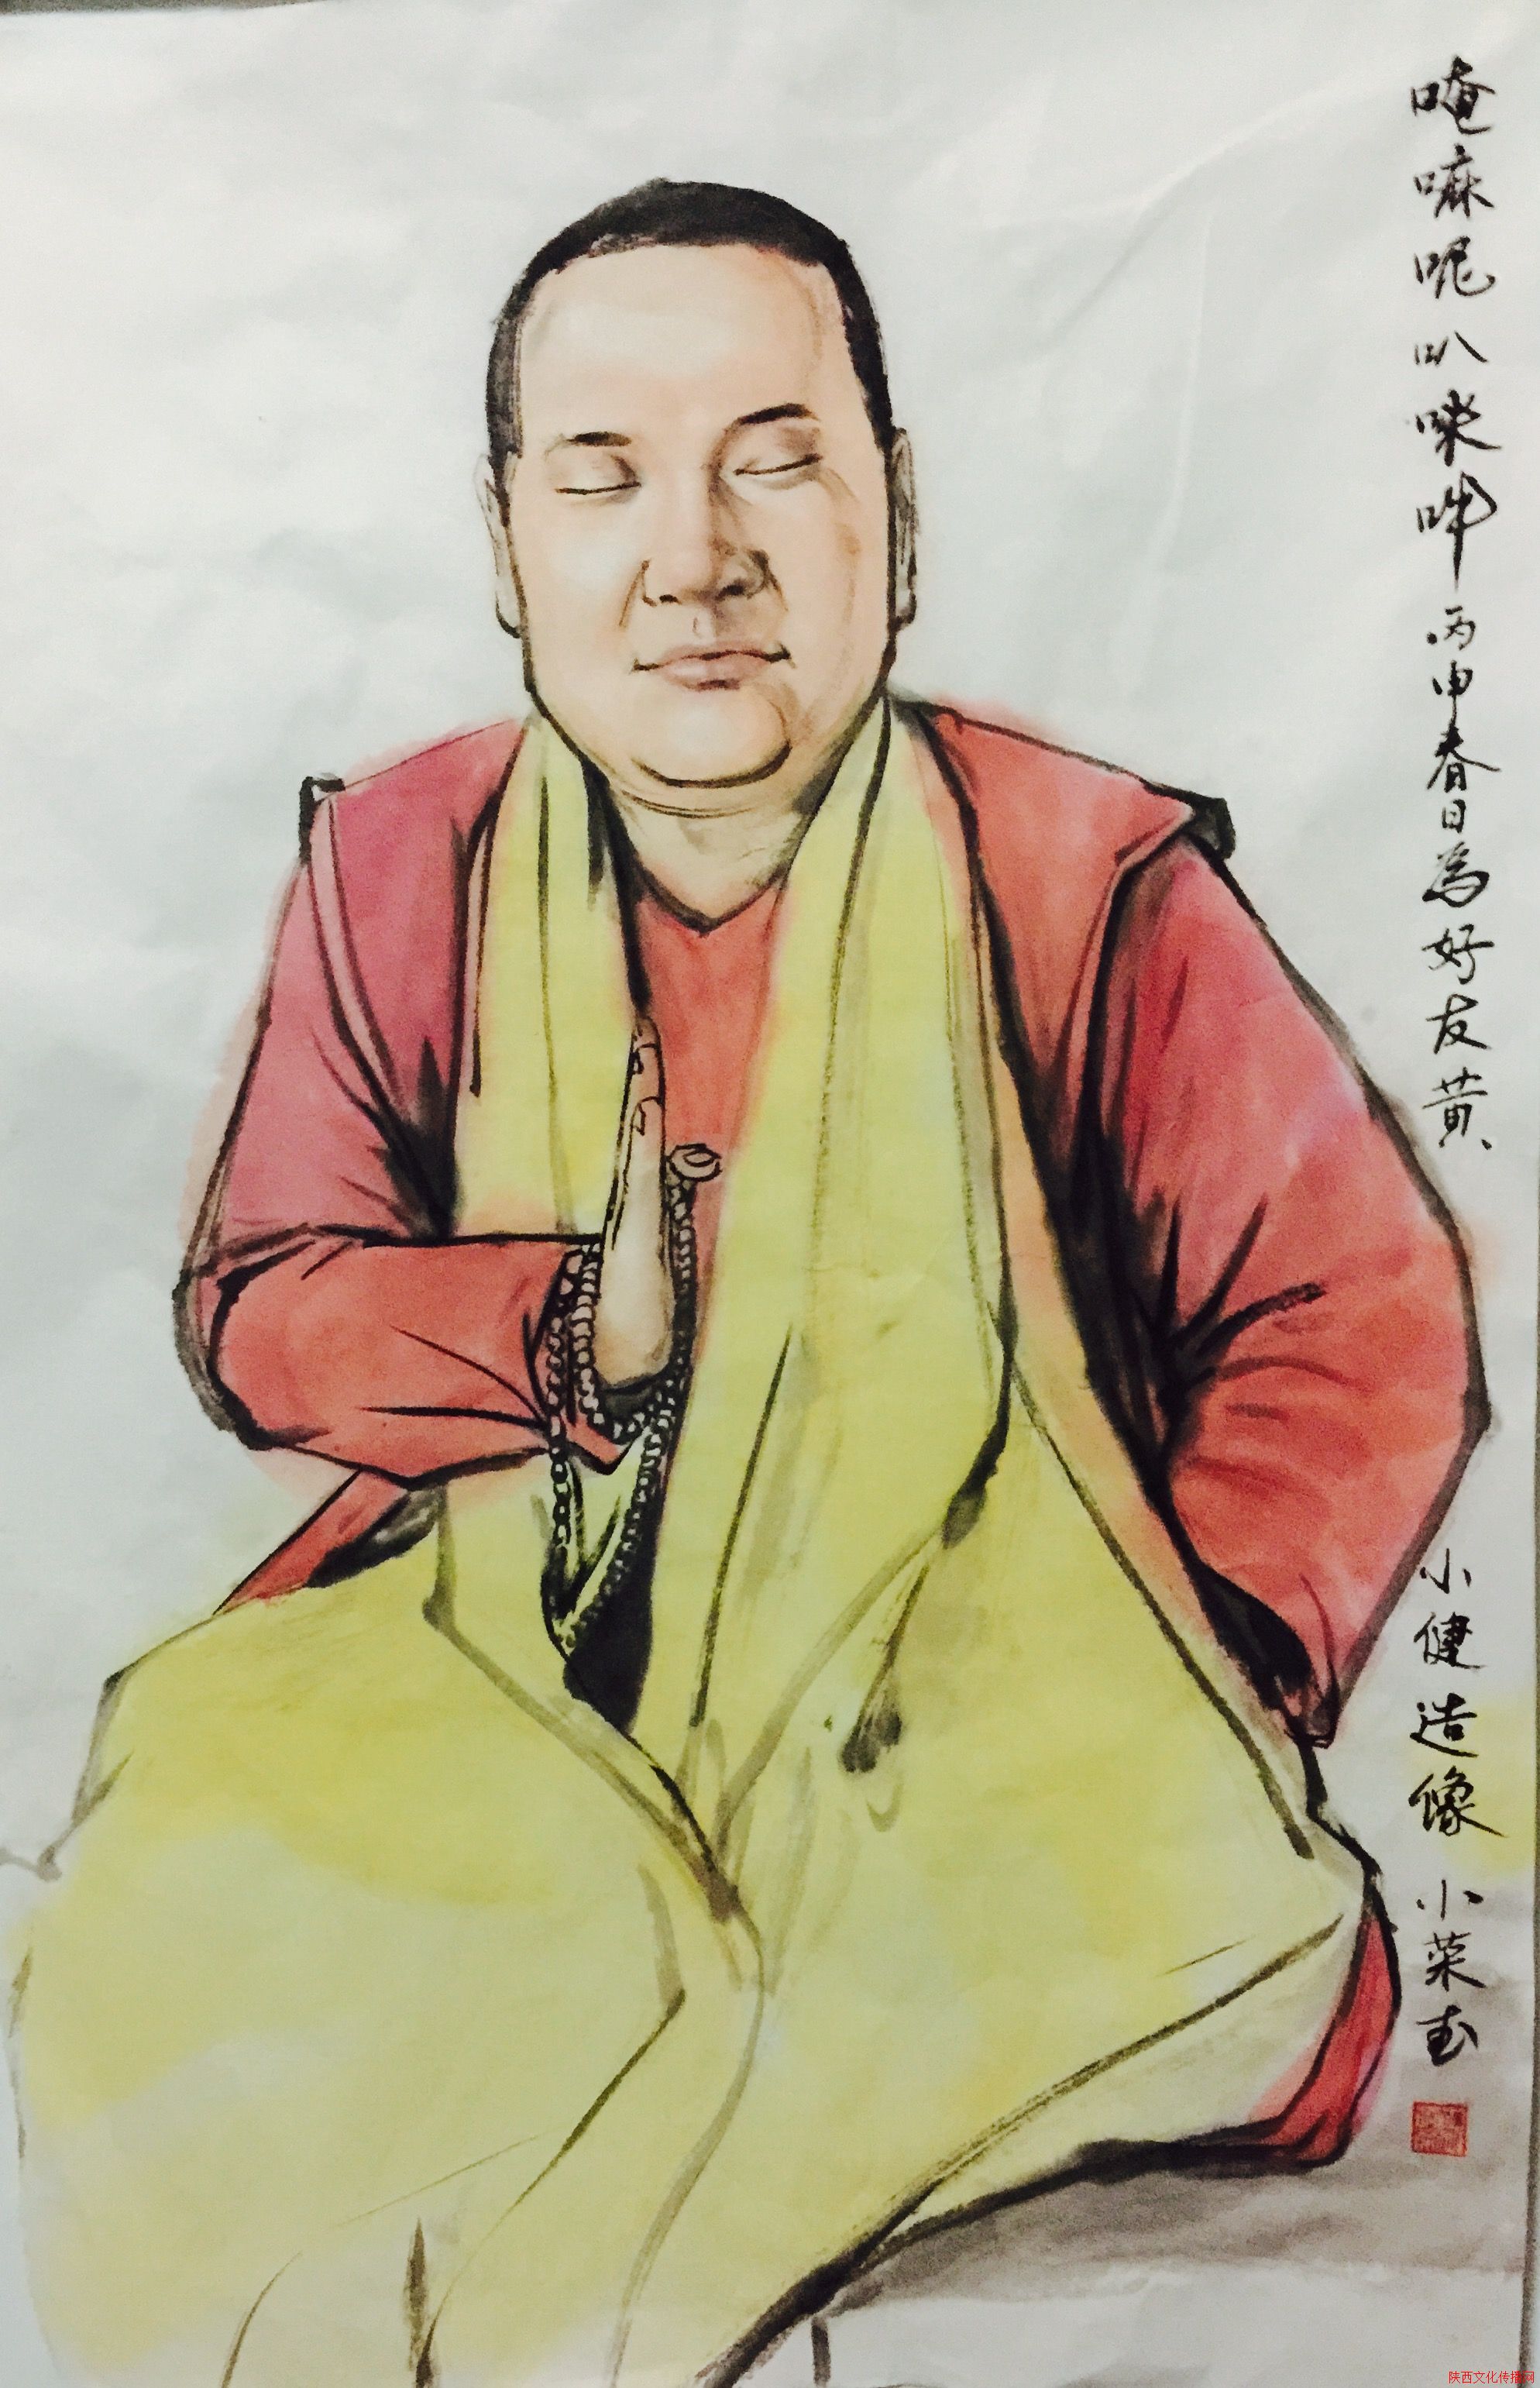 唵嘛呢叭咪吽 丙申春日为好友黄
小健造像 小菜画
陕西文化传播网